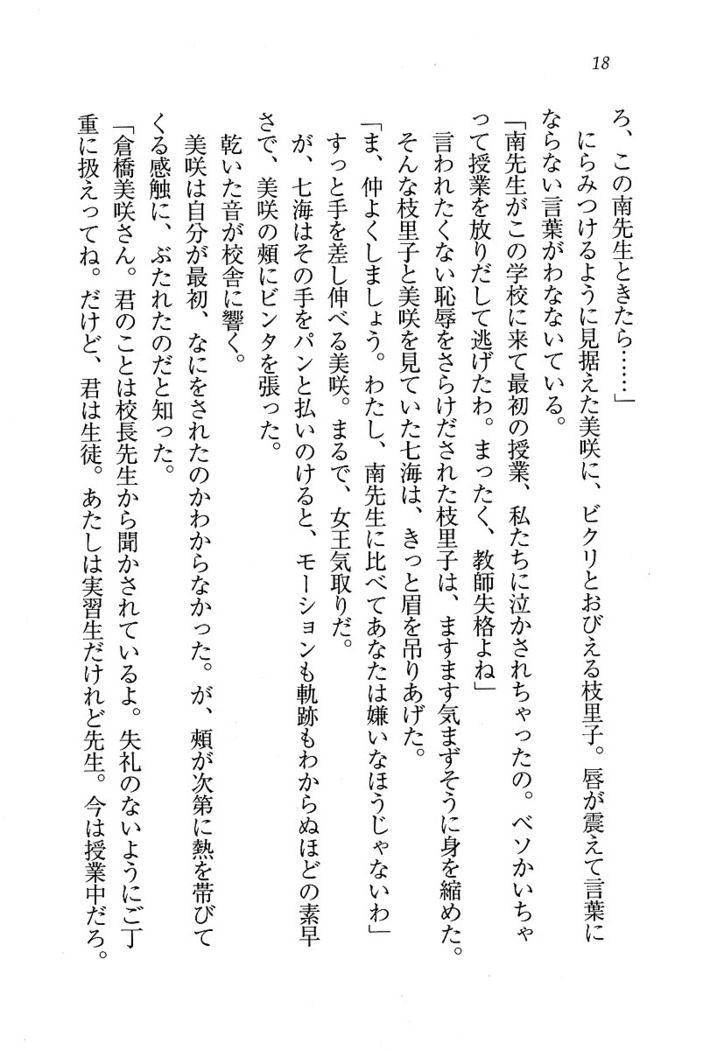 18
ろ、この南先生ときたら……」
にらみつけるように見据えた美咲に、ビクリとおびえる枝里子。唇が震えて言葉に
ならない言葉がわなないている。
「南先生がこの学校に来て最初の授業、私たちに泣かされちゃったの。ベソかいちゃ
って授業を放りだして逃げたわ。まったく、教師失格よね」
言われたくない恥辱をさらけだされた枝里子は、ますます気まずそうに身を縮めた。
そんな枝里子と美咲を見ていた七海は、きっと眉を吊りあげた。
「ま、仲よくしましょう。わたし、南先生に比べてあなたは嫌いなほうじゃないわ」
すっと手を差し伸べる美咲。まるで、女王気取りだ。
が、七海はその手をパンと払いのけると、モーションも軌跡もわからぬほどの素早
さで、美咲の頰にビンタを張った。
乾いた音が校舎に響く。
美咲は自分が最初、なにをされたのかわからなかった。が、頰が次第に熱を帯びて
くる感触に、ぶたれたのだと知った。
「倉橋美咲さん。君のことは校長先生から聞かされているよ。失礼のないようにご丁
重に扱えってね。だけど、君は生徒。あたしは実習生だけれど先生。今は授業中だろ。